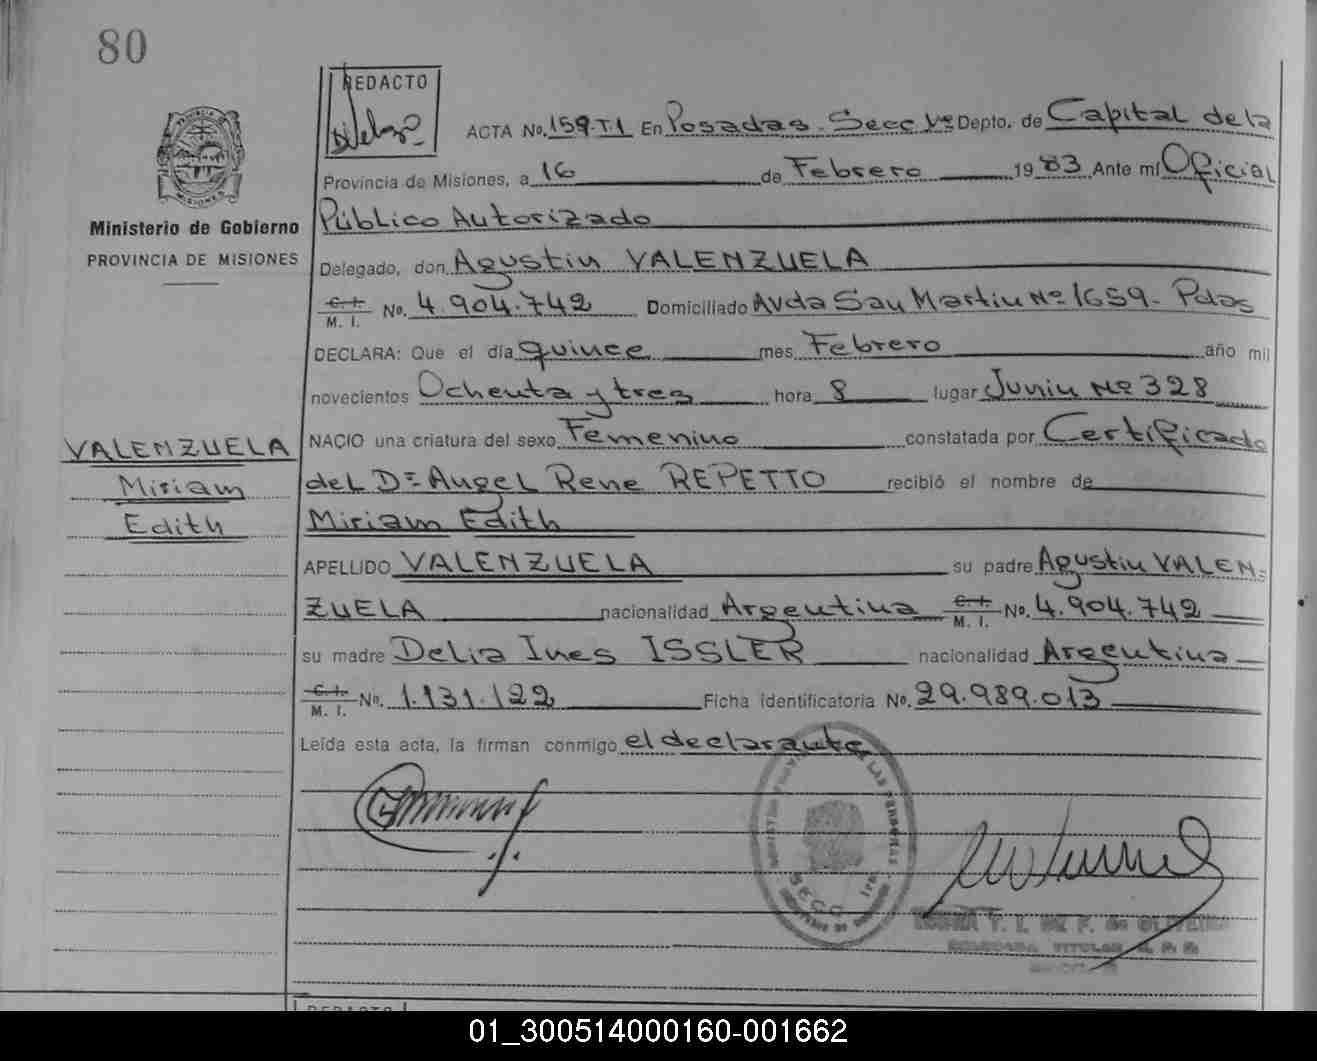 80
REDACTO
ACTA No. 159-T.I En Posadas - Secc 1ª Depto. de Capital de la
Provincia de Misiones, a 16 de Febrero 1983 Ante mí Oficial
Público Autorizado
Ministerio de Gobierno
PROVINCIA DE MISIONES
Delegado, don Agustin VALENZUELA
C. I. M. I. No. 4.904.742 Domiciliado Avda San Martin Nº 1659 - Pdas
DECLARA: Que el día quince mes Febrero año mil
novecientos Ochenta y tres hora 8 lugar Junin Nº 328
NACIO una criatura del sexo Femenino constatada por Certificado
del Dr Angel Rene REPETTO recibió el nombre de
Miriam Edith
VALENZUELA
Miriam
Edith
APELLIDO VALENZUELA su padre Agustin VALEN=
ZUELA nacionalidad Argentina C. I. M. I. No. 4.904.742
su madre Delia Ines ISSLER nacionalidad Argentina
C. I. M. I. No. 1.131.122 Ficha identificatoria No. 29.989.013
Leída esta acta, la firman conmigo el declarante
SECC 1ra.
01_300514000160-001662